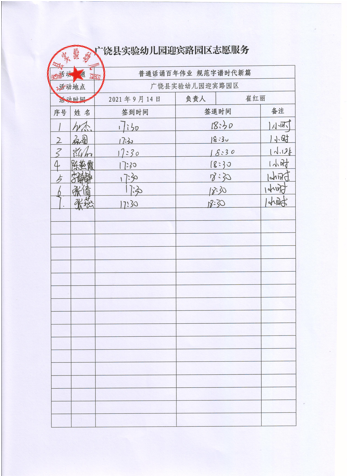 广饶县实验幼儿园迎宾路园区志愿服务
活动主题 普通话诵百年伟业 规范字谱时代新篇
活动地点 广饶县实验幼儿园迎宾路园区
活动时间 2021年9月14日 负责人 崔红丽
序号 姓名 签到时间 签退时间 备注
1 17:30 18:30 1小时
2 17:30 18:30 1小时
3 17:30 18:30 1小时
4 17:30 18:30 1小时
5 17:30 18:30 1小时
6 张倩 17:30 18:30 1小时
7. 张燕 17:30 18:30 1小时